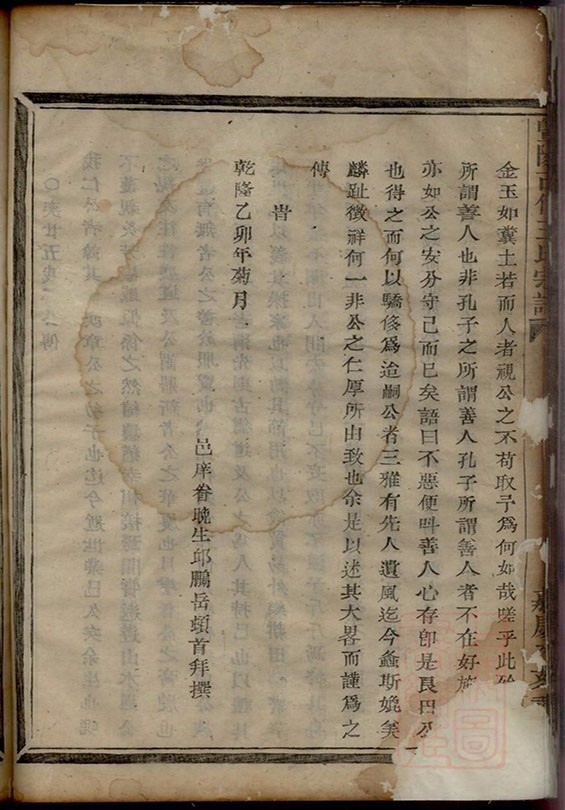 金玉如糞土若而人者視公之不苟取予為何如哉嗟乎此殆
所謂善人也非孔子之所謂善人孔子所謂善人者不在好施
亦如公之安分守己而已矣語曰不惡便呌善人心存即是良田久
也得之而何以驕侈為迨嗣公者三雅有先人遺風迄今螽斯㛹羙
麟趾徵祥何一非公之仁厚所由致也余是以述其大畧而謹為之
傳
旹
乾隆乙卯年菊月
邑庠眷晚生邱鵬岳頓首拜撰
王氏宗譜
嘉慶